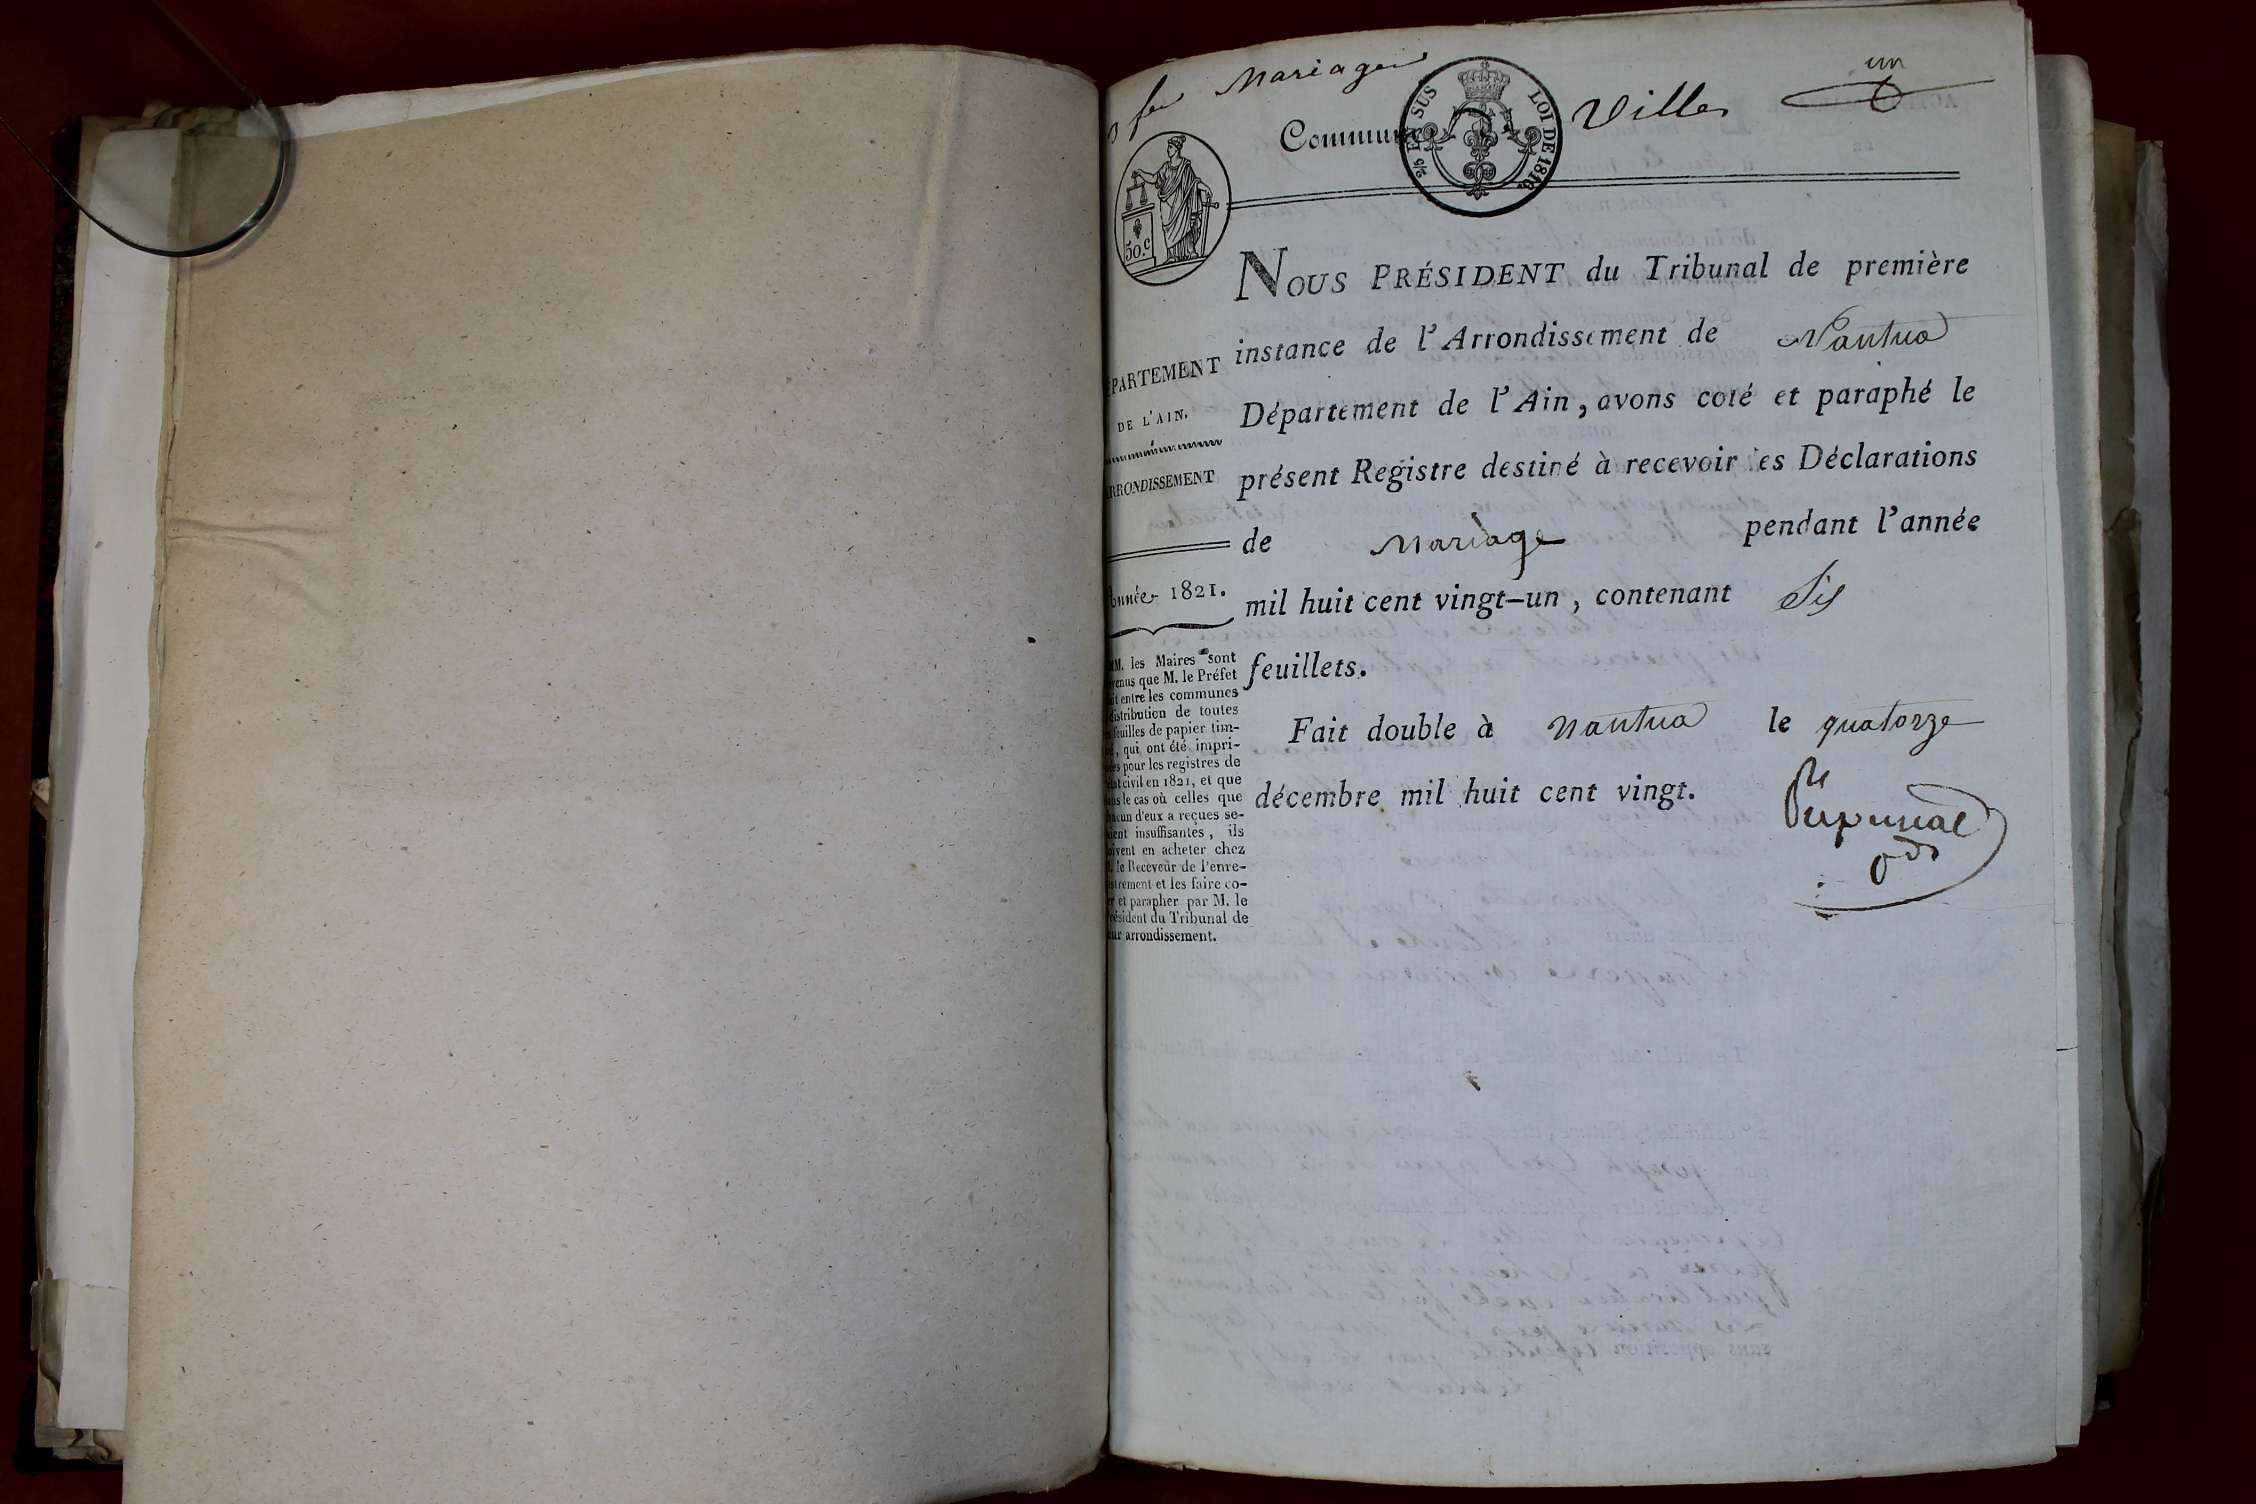 Mariage
Commune Villes un
EN SUS LOI DE 1816.
50.c
NOUS PRÉSIDENT du Tribunal de première
instance de l'Arrondissement de Nantua
Département de l'Ain, avons coté et paraphé le
présent Registre destiné à recevoir les Déclarations
de Mariage pendant l'année
mil huit cent vingt-un, contenant Six
feuillets.
Fait double à Nantua le quatorze
décembre mil huit cent vingt.
PARTEMENT
DE L'AIN.
RRONDISSEMENT
Année 1821.
MM. les Maires sont
venus que M. le Préfet
it entre les communes
distribution de toutes
feuilles de papier tim-
, qui ont été impri-
es pour les registres de
tat civil en 1821, et que
ns le cas où celles que
acun d'eux a reçues se-
aient insuffisantes, ils
oivent en acheter chez
. le Receveur de l'enre-
istrement et les faire co-
er et parapher par M. le
Président du Tribunal de
eur arrondissement.